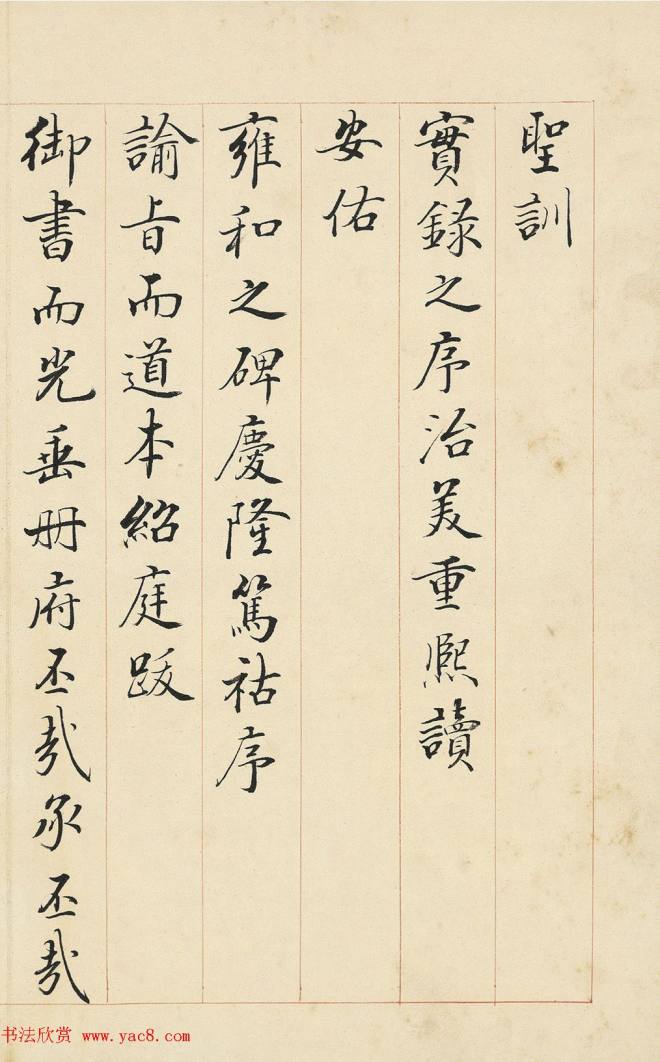 聖訓
實錄之序治美重熙讀
安佑
雍和之碑慶隆篤祜序
諭旨而道本紹庭跋
御書而光垂冊府丕哉承丕哉
书法欣赏 www.yac8.com